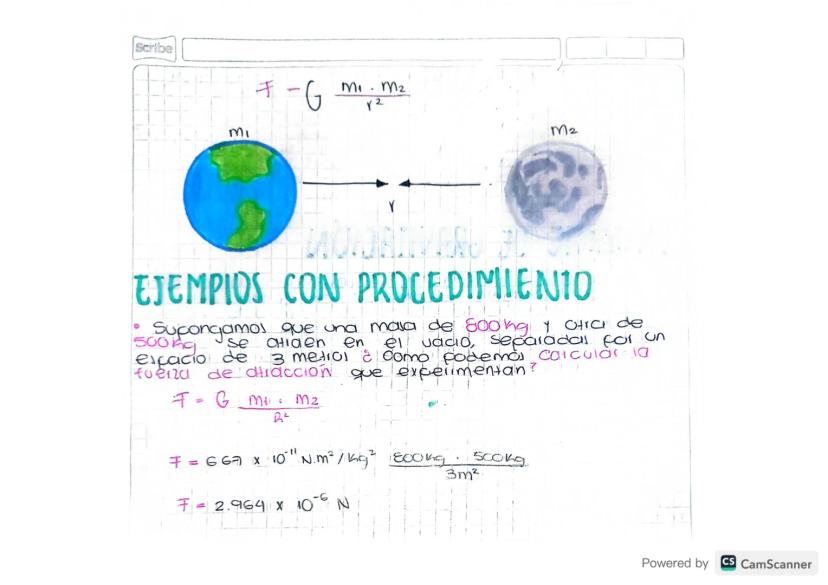 scribe
F = G m1 . m2
r²
m1
m2
r
EJEMPLOS CON PROCEDIMIENTO
• Supongamos que una masa de 800kg y otra de
500kg se atraen en el vacio, separadas por un
espacio de 3 metros ¿ como podemos calcular la
fuerza de atracción que experimentan?
F = G m1 . m2
R²
F = 667 x 10⁻¹¹ N.m²/kg² 800kg . 500kg
3m²
F = 2.964 x 10⁻⁶ N
Powered by CS CamScanner